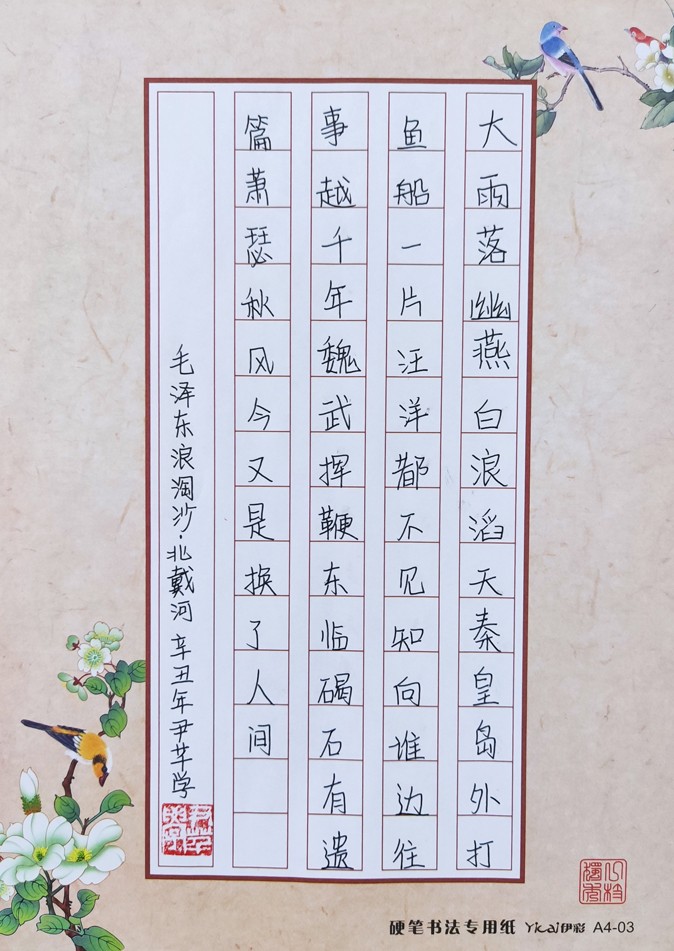 大雨落幽燕白浪滔天秦皇岛外打
鱼船一片汪洋都不见知向谁边往
事越千年魏武挥鞭东临碣石有遗
篇萧瑟秋风今又是换了人间
毛泽东浪淘沙·北戴河 辛丑年尹芊学
硬笔书法专用纸 Yicai伊彩 A4-03